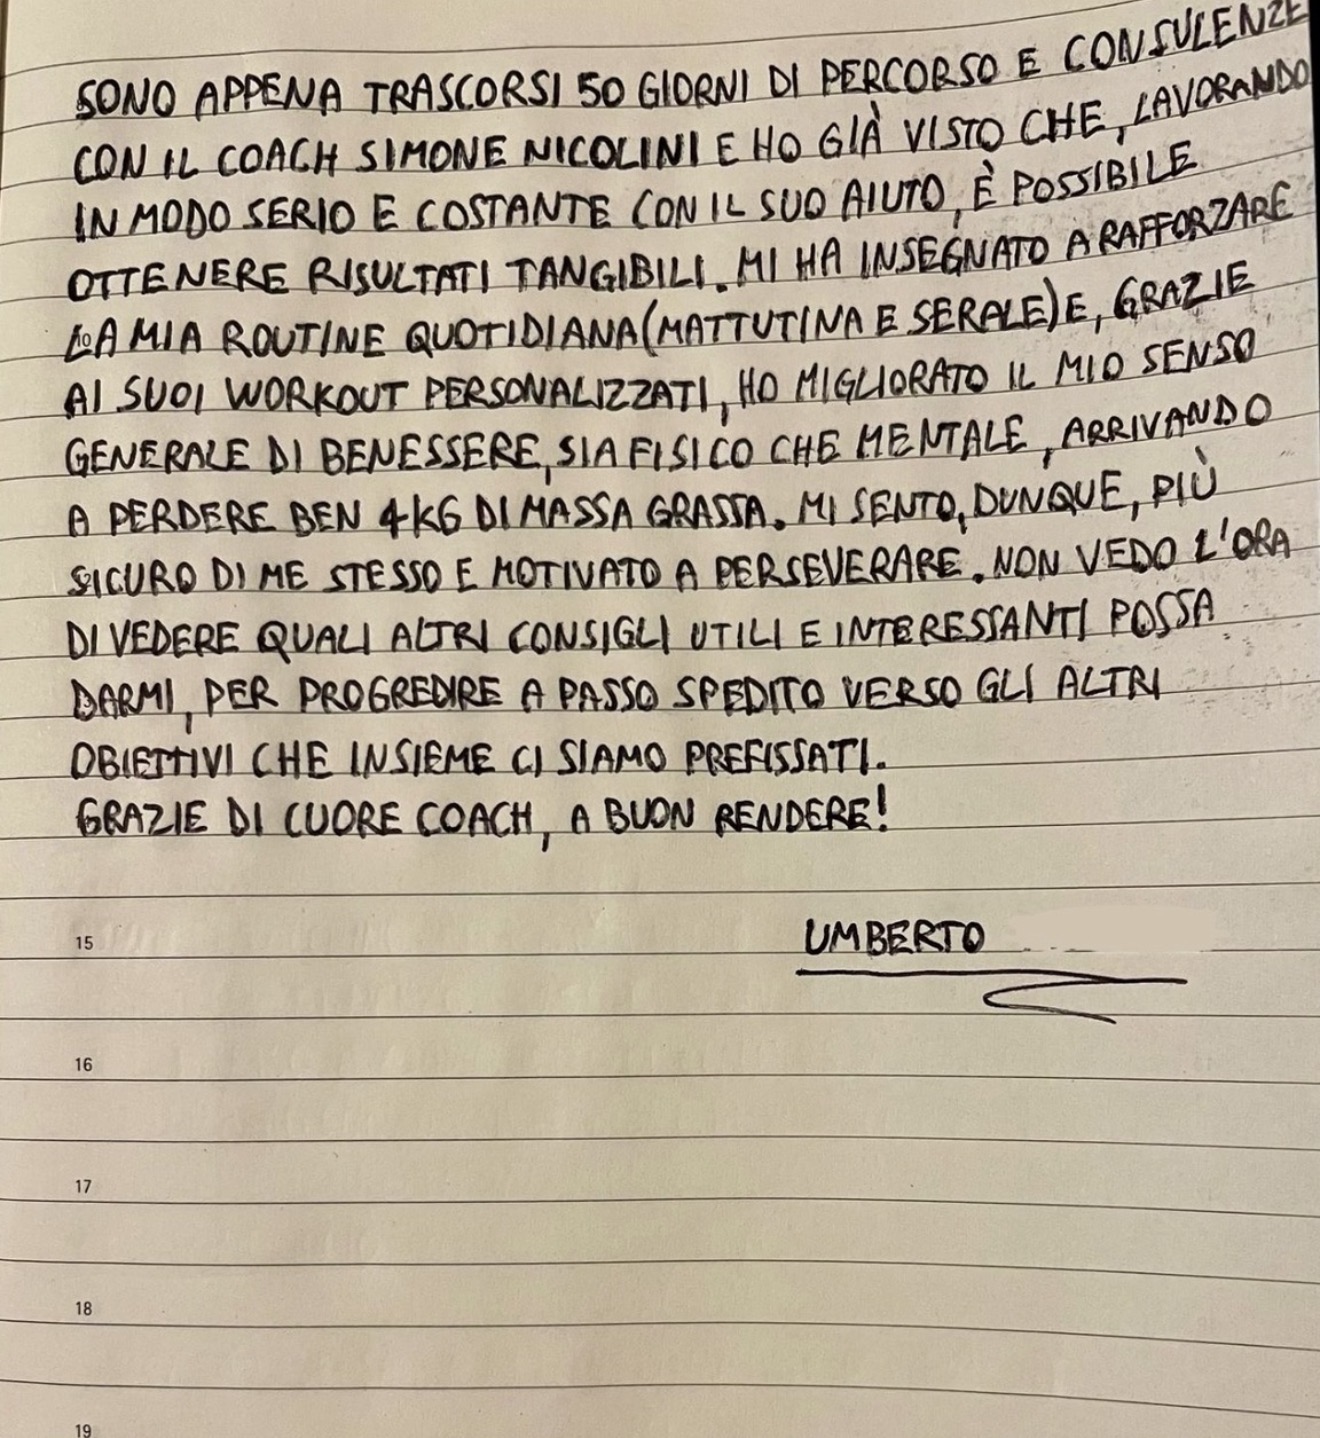 SONO APPENA TRASCORSI 50 GIORNI DI PERCORSO E CONSULENZE
CON IL COACH SIMONE NICOLINI E HO GIÀ VISTO CHE, LAVORANDO
IN MODO SERIO E COSTANTE CON IL SUO AIUTO, È POSSIBILE
OTTENERE RISULTATI TANGIBILI. MI HA INSEGNATO A RAFFORZARE
LA MIA ROUTINE QUOTIDIANA (MATTUTINA E SERALE) E, GRAZIE
AI SUOI WORKOUT PERSONALIZZATI, HO MIGLIORATO IL MIO SENSO
GENERALE DI BENESSERE, SIA FISICO CHE MENTALE, ARRIVANDO
A PERDERE BEN 4KG DI MASSA GRASSA. MI SENTO, DUNQUE, PIÙ
SICURO DI ME STESSO E MOTIVATO A PERSEVERARE. NON VEDO L'ORA
DI VEDERE QUALI ALTRI CONSIGLI UTILI E INTERESSANTI POSSA
DARMI, PER PROGREDIRE A PASSO SPEDITO VERSO GLI ALTRI
OBIETTIVI CHE INSIEME CI SIAMO PREFISSATI.
GRAZIE DI CUORE COACH, A BUON RENDERE!
15
UMBERTO
16
17
18
19